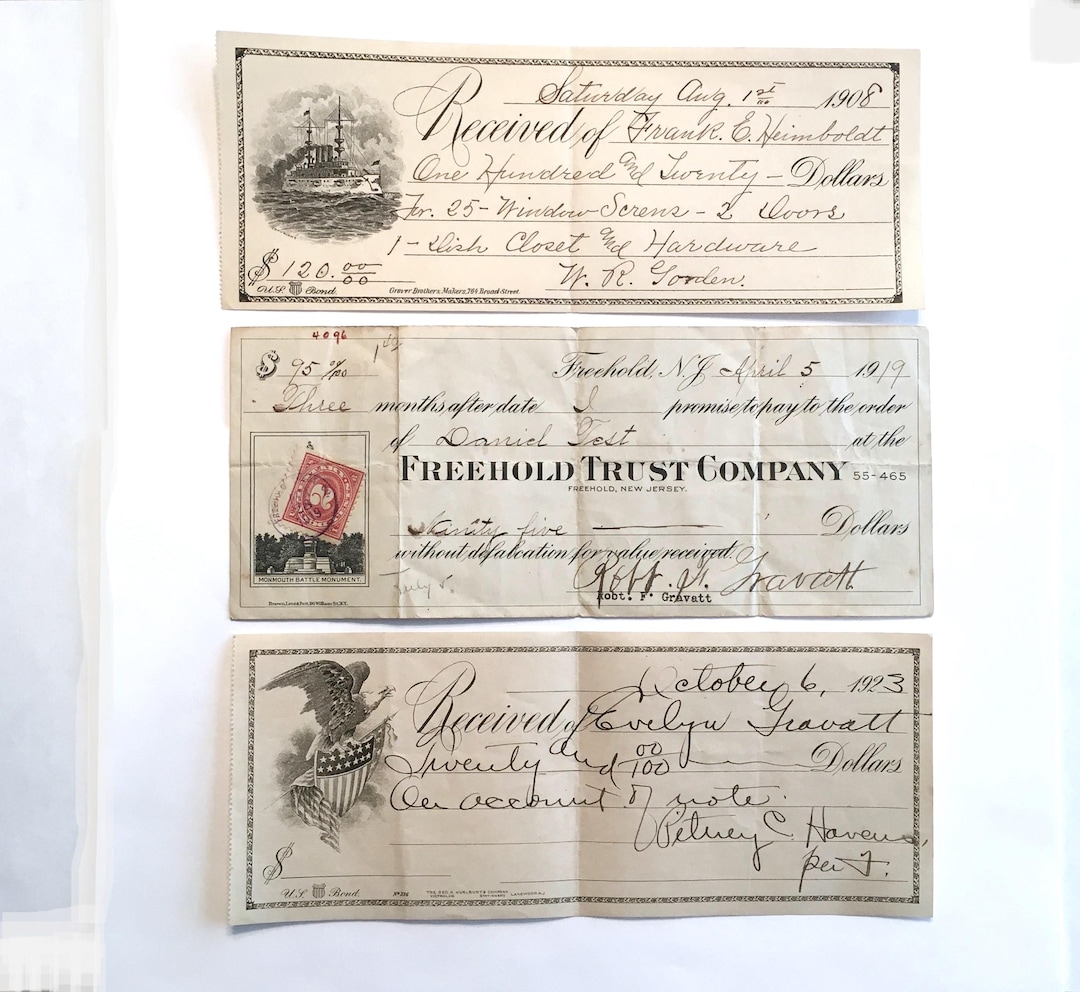 Saturday Aug. 1st 1908
Received of Frank. E. Heimboldt
One Hundred and Twenty - Dollars
For. 25 - Window Screns - 2 Doors
1 - Dish Closet and Hardware
$ 120. 00/00 W. R. Gorden.
U.S. Bond. Grover Brothers, Makers, 764 Broad Street.
4096
$ 95 00/100 Freehold, N.J. April 5 1919
Three months after date I promise to pay to the order
of Daniel Test at the
FREEHOLD TRUST COMPANY 55-465
FREEHOLD, NEW JERSEY.
Ninity five Dollars
without defalcation for value received.
Robt. F. Gravatt
Robt. F. Gravatt
2
MONMOUTH BATTLE MONUMENT.
July 5.
October 6, 1923
Received of Evelyn Gravatt
Twenty and 00/100 Dollars
On account of note.
Pitney C. Havens,
per F.
$
U.S. Bond. No 236 THE GEO. A. HURLBURT & COMPANY
STATIONERY LAKEWOOD, N.J.